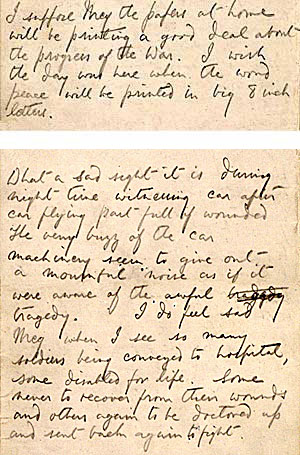 I suppose Meg the papers at home
will be printing a good deal about
the progress of the War. I wish
the day was here when the word
peace will be printed in big 8 inch
letters.
What a sad sight it is during
night time witnessing car after
car flying past full of wounded
The very buzz of the car
machinery seem to give out
a mournful noise as if it
were aware of the awful
tragedy. I do feel sad
Meg when I see so many
soldiers being conveyed to hospital,
some disabled for life. Some
never to recover from their wounds
and others again to be doctored up
and sent back again to fight.